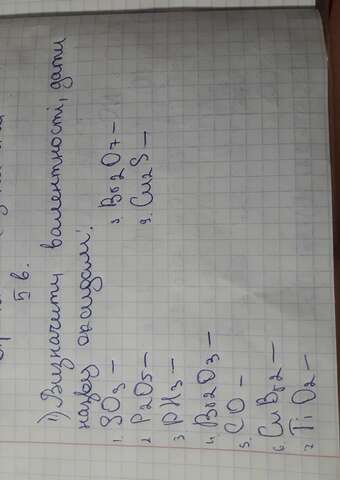 II в.
1) Визначити валентності, дати
назву оксидам:
1. SO3 –
2. P2O5 –
3. PH3 –
4. Br2O3 –
5. CO –
6. CuBr2 –
7. TiO2 –
8. Br2O7 –
9. Cu2S –